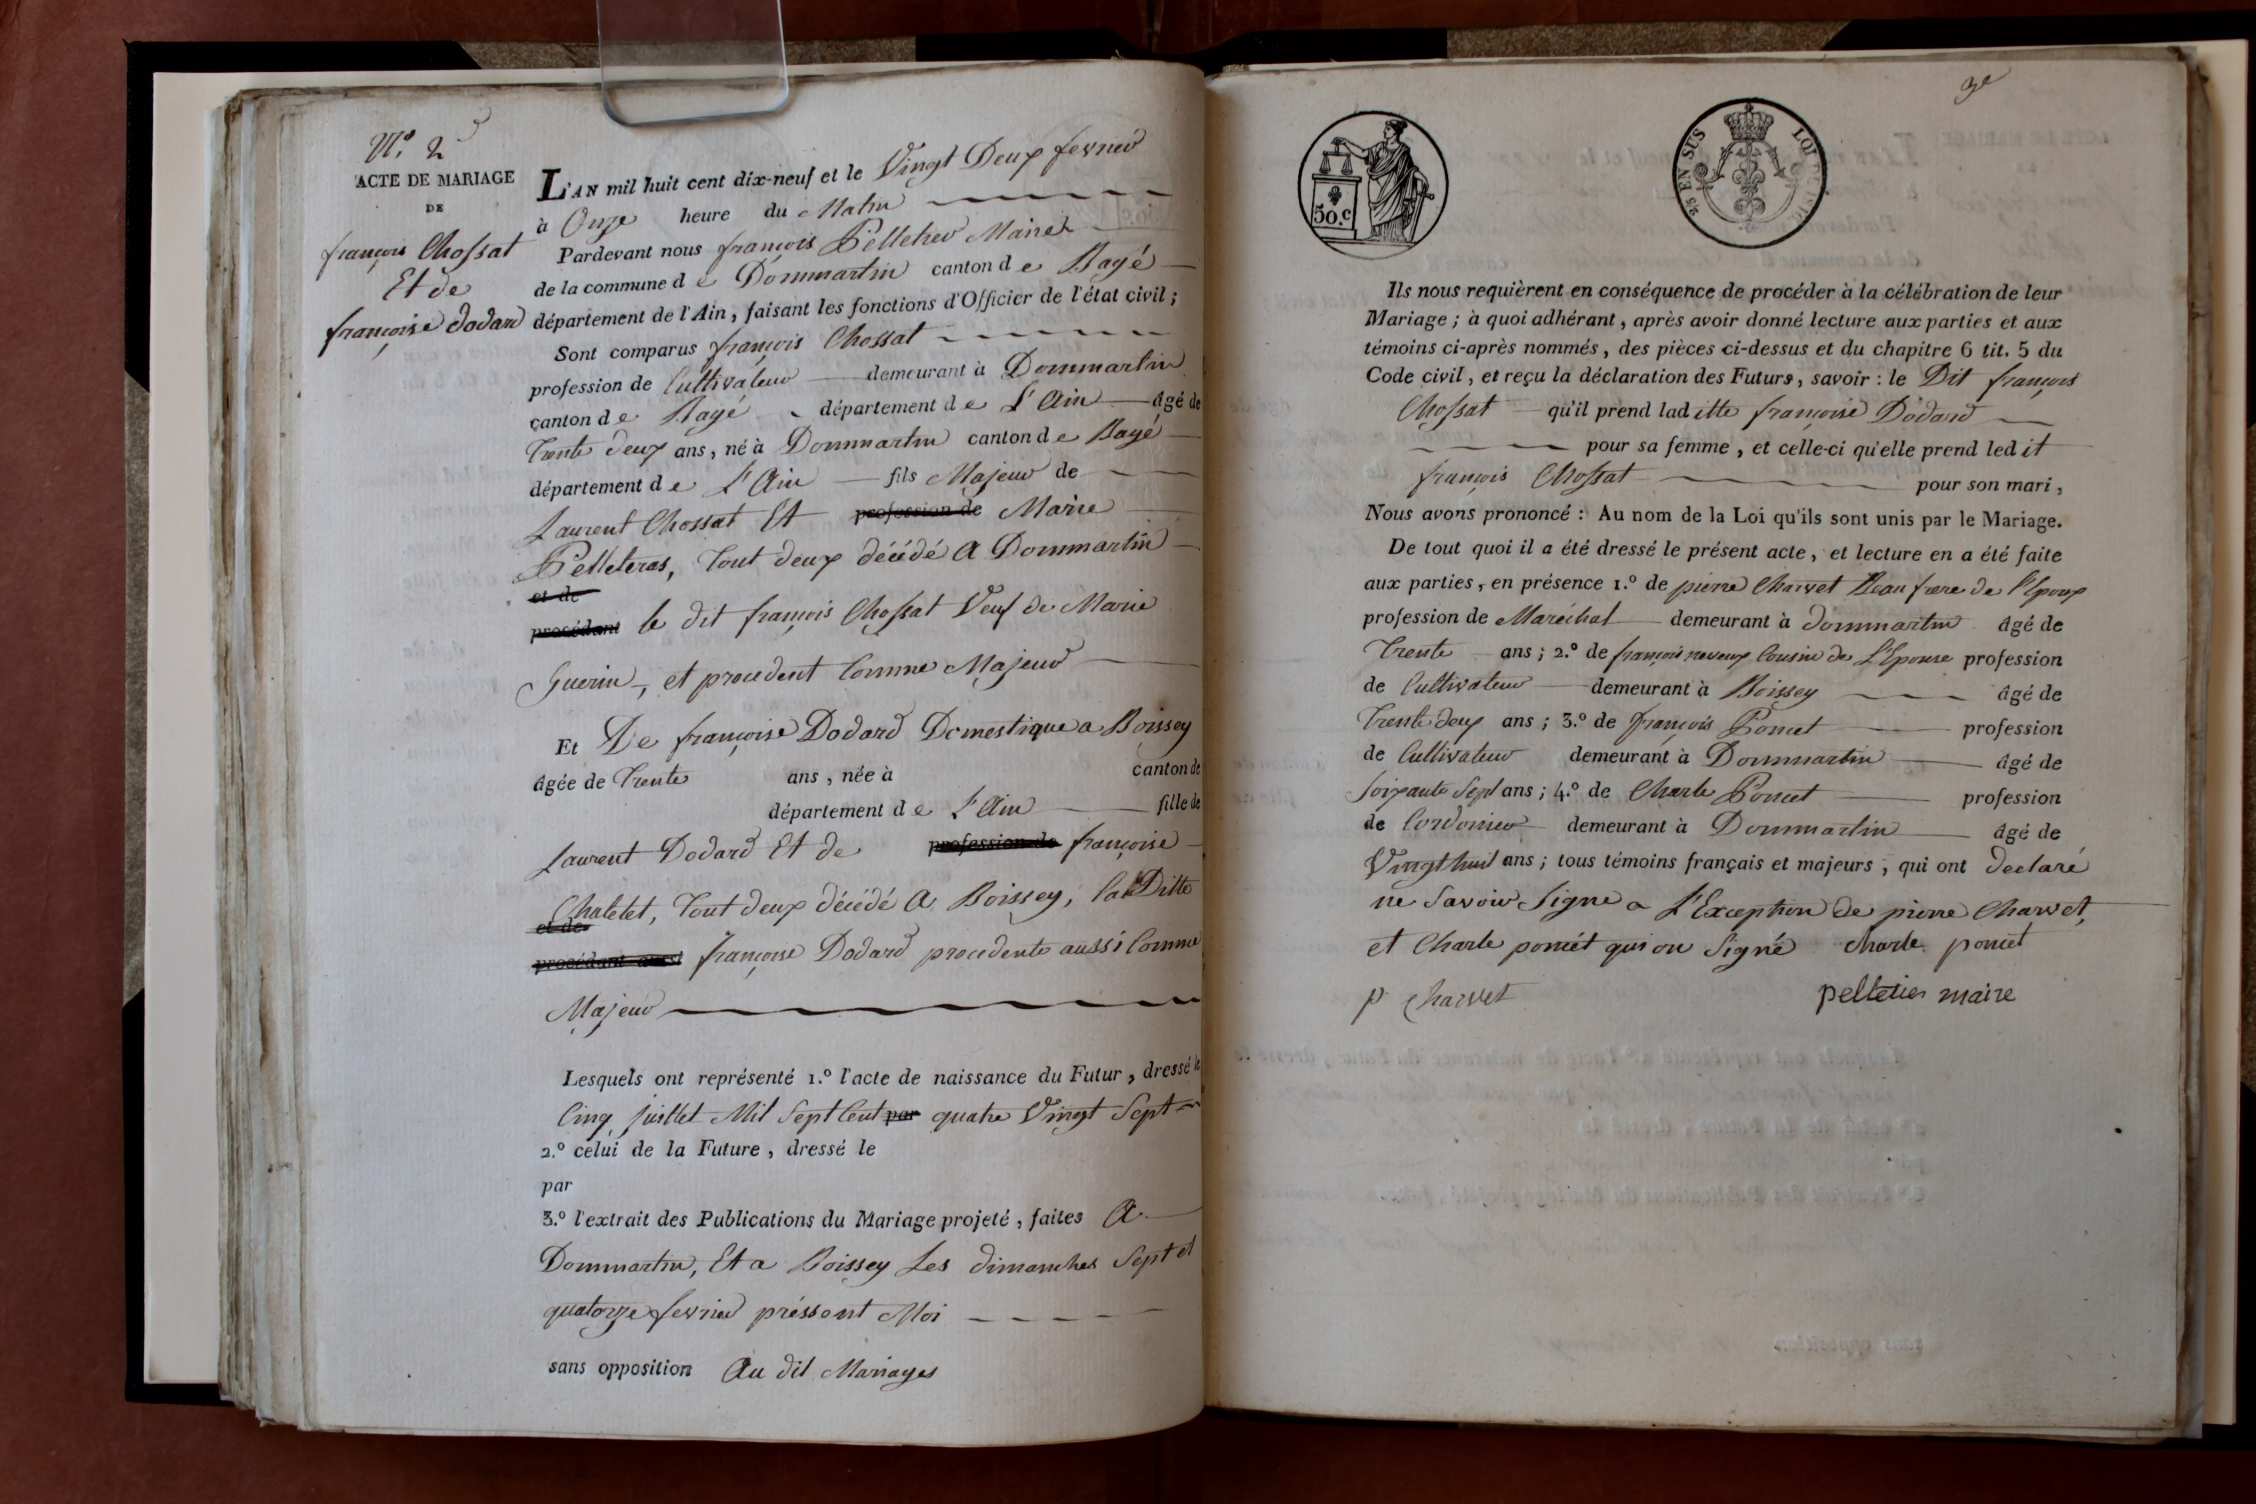 N.º 2
ACTE DE MARIAGE
DE
françois Chossat
Et de
françoise dodard
L'AN mil huit cent dix-neuf et le Vingt Deux fevrier
à Onze heure du Matin
Pardevant nous françois Pelletier Maire
de la commune de Dommartin canton de Bagé
département de l'Ain, faisant les fonctions d'Officier de l'état civil;
Sont comparus françois Chossat
profession de Cultivateur demeurant à Dommartin
canton de Bagé département de L'Ain âgé de
Trente deux ans, né à Dommartin canton de Bagé
département de L'Ain fils Majeur de
Laurent Chossat Et profession de Marie
Pelleteras, Tout deux décédé A Dommartin
et de
procédant le dit françois Chossat Veuf de Marie
Guerin, et procedent Comme Majeur
Et De françoise Dodard Domestique a Boissey
âgée de Trente ans, née à canton de
département de L'Ain fille de
Laurent Dodard Et de profession de françoise
Chatelet, Tout deux décédé A Boissey, la Ditte
et de
procédant aussi françoise Dodard procedente aussi Comme
Majeur
Lesquels ont représenté 1.º l'acte de naissance du Futur, dressé le
Cinq juillet Mil Sept Cent par quatre Vingt Sept
2.º celui de la Future, dressé le
par
3.º l'extrait des Publications du Mariage projeté, faites A
Dommartin, Et a Boissey Les dimanches Sept et
quatorze fevrier préssent Moi
sans opposition Au dit Mariages
3e
50.C
2/5 EN SUS
LOI DE
Ils nous requièrent en conséquence de procéder à la célébration de leur
Mariage; à quoi adhérant, après avoir donné lecture aux parties et aux
témoins ci-après nommés, des pièces ci-dessus et du chapitre 6 tit. 5 du
Code civil, et reçu la déclaration des Futurs, savoir: le Dit françois
Chossat qu'il prend laditte françoise Dodard
pour sa femme, et celle-ci qu'elle prend ledit
françois Chossat pour son mari,
Nous avons prononcé: Au nom de la Loi qu'ils sont unis par le Mariage.
De tout quoi il a été dressé le présent acte, et lecture en a été faite
aux parties, en présence 1.º de pierre Charvet Beau frere de l'Epoux
profession de Maréchal demeurant à dommartin âgé de
Trente ans; 2.º de françois neveux Cousin de L'Epouse profession
de Cultivateur demeurant à Boissey âgé de
Trente deux ans; 3.º de françois Poncet profession
de Cultivateur demeurant à Dommartin âgé de
Soixante Sept ans; 4.º de Charle Poncet profession
de Cordonier demeurant à Dommartin âgé de
Vingt huit ans; tous témoins français et majeurs, qui ont declaré
ne Savoir Signe a L'Exception de pierre Charvet,
et Charle poncét qui on Signé charle poncet
p Charvet pelletier maire